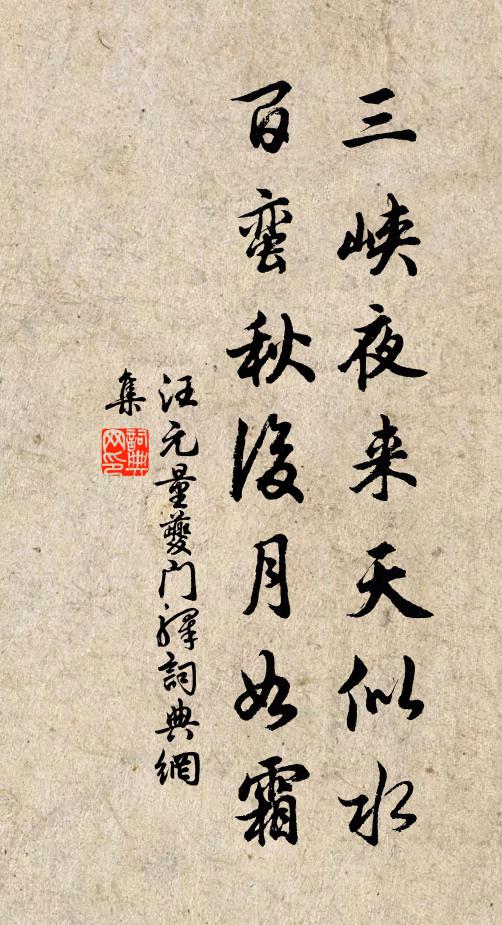 三峡夜来天似水
百蛮秋后月如霜
汪元量夔门驿詞典網
集
詞典网印